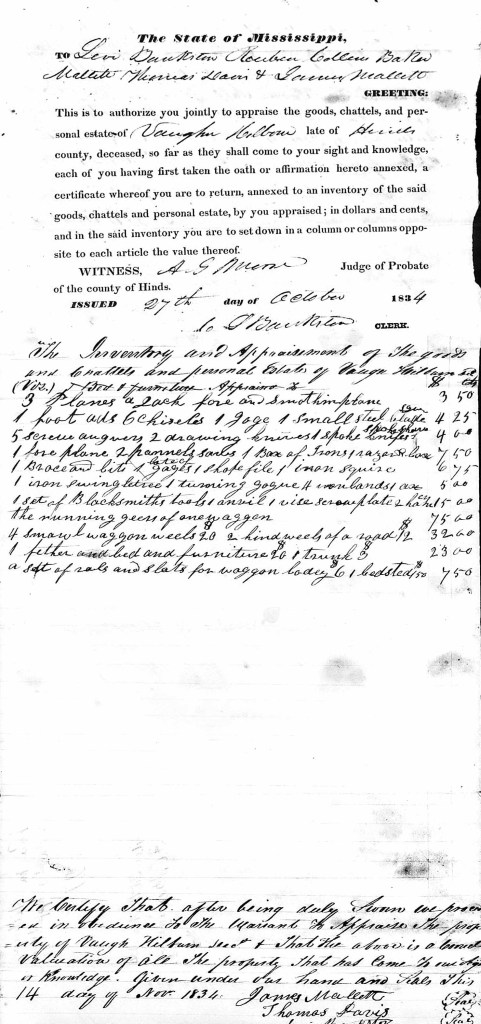 The State of Mississippi,
TO Levi Bankston Reuben Collins Baker
Mallett Thomas Davis & James Mallett
GREETING:
This is to authorize you jointly to appraise the goods, chattels, and per-
sonal estate of Vaughn Hilbun late of Hinds
county, deceased, so far as they shall come to your sight and knowledge,
each of you having first taken the oath or affirmation hereto annexed, a
certificate whereof you are to return, annexed to an inventory of the said
goods, chattels and personal estate, by you appraised; in dollars and cents,
and in the said inventory you are to set down in a column or columns oppo-
site to each article the value thereof.
WITNESS, A G Judge of Probate
of the county of Hinds.
ISSUED 27th day of October 1834
Bankston CLERK.
The Inventory and Appraisement of the goods
and Chattels and personal Estate of Vaugh Hilburn
(Viz.) & furniture
3 Planes a Jack fore and smothin plane 3 50
1 foot ads 6 chiseles 1 goge 1 small 4 25
5 screue augurs 2 drawing knives 1 spoke 4 00
1 fore plane 2 pannel saws 1 Box of Irons 1 razor & box 7 50
1 Brace and bits gages 1 file 1 iron squire 6 75
1 iron 1 turning gogue 4 iron bands 1 axe 5 00
1 set of Blacksmiths tools 1 anvil 1 vise scrowplate 2 15 00
the running geers of one waggon 75 00
4 smawl waggon weels $20 2 hind weels of a road $12 32 00
1 fether and bed and furniture $20 1 trunk $3 23 00
a set of rals and slats for waggon bodey $6 1 bedsted $1 50 7 50
We Certify That after being duly Sworn we proce
=ed in obedience To the Warrant To Appraise The prop
erty of Vaugh Hilburn Decd & That the above is a Correct
Valuation of all The property That has Come To our
or Knowledge. Given under our hand and Seals This
14 day of Nov. 1834. James Mallett (Seal)
Thomas Davis (Seal)